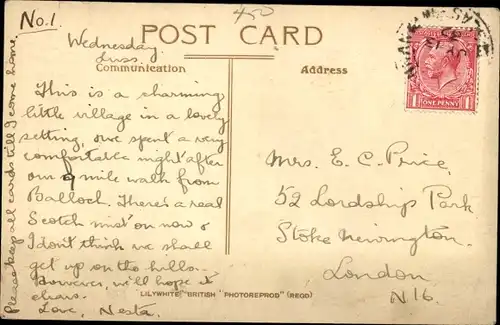 No.1
450
POST CARD
Wednesday
Luss.
Communication
Address
This is a charming
little village in a lovely
setting, we spent a very
comfortable night after
our 9 mile walk from
Balloch. There's a real
Scotch mist on now &
I don't think we shall
get up on the hills.
However, we'll hope it
clears.
Love, Nesta.
Please keep all cards till I come home.
ONE PENNY
Mrs. E. C. Price,
52 Lordship Park
Stoke Newington.
London
N16.
"LILYWHITE" BRITISH "PHOTOREPROD" (REGD)